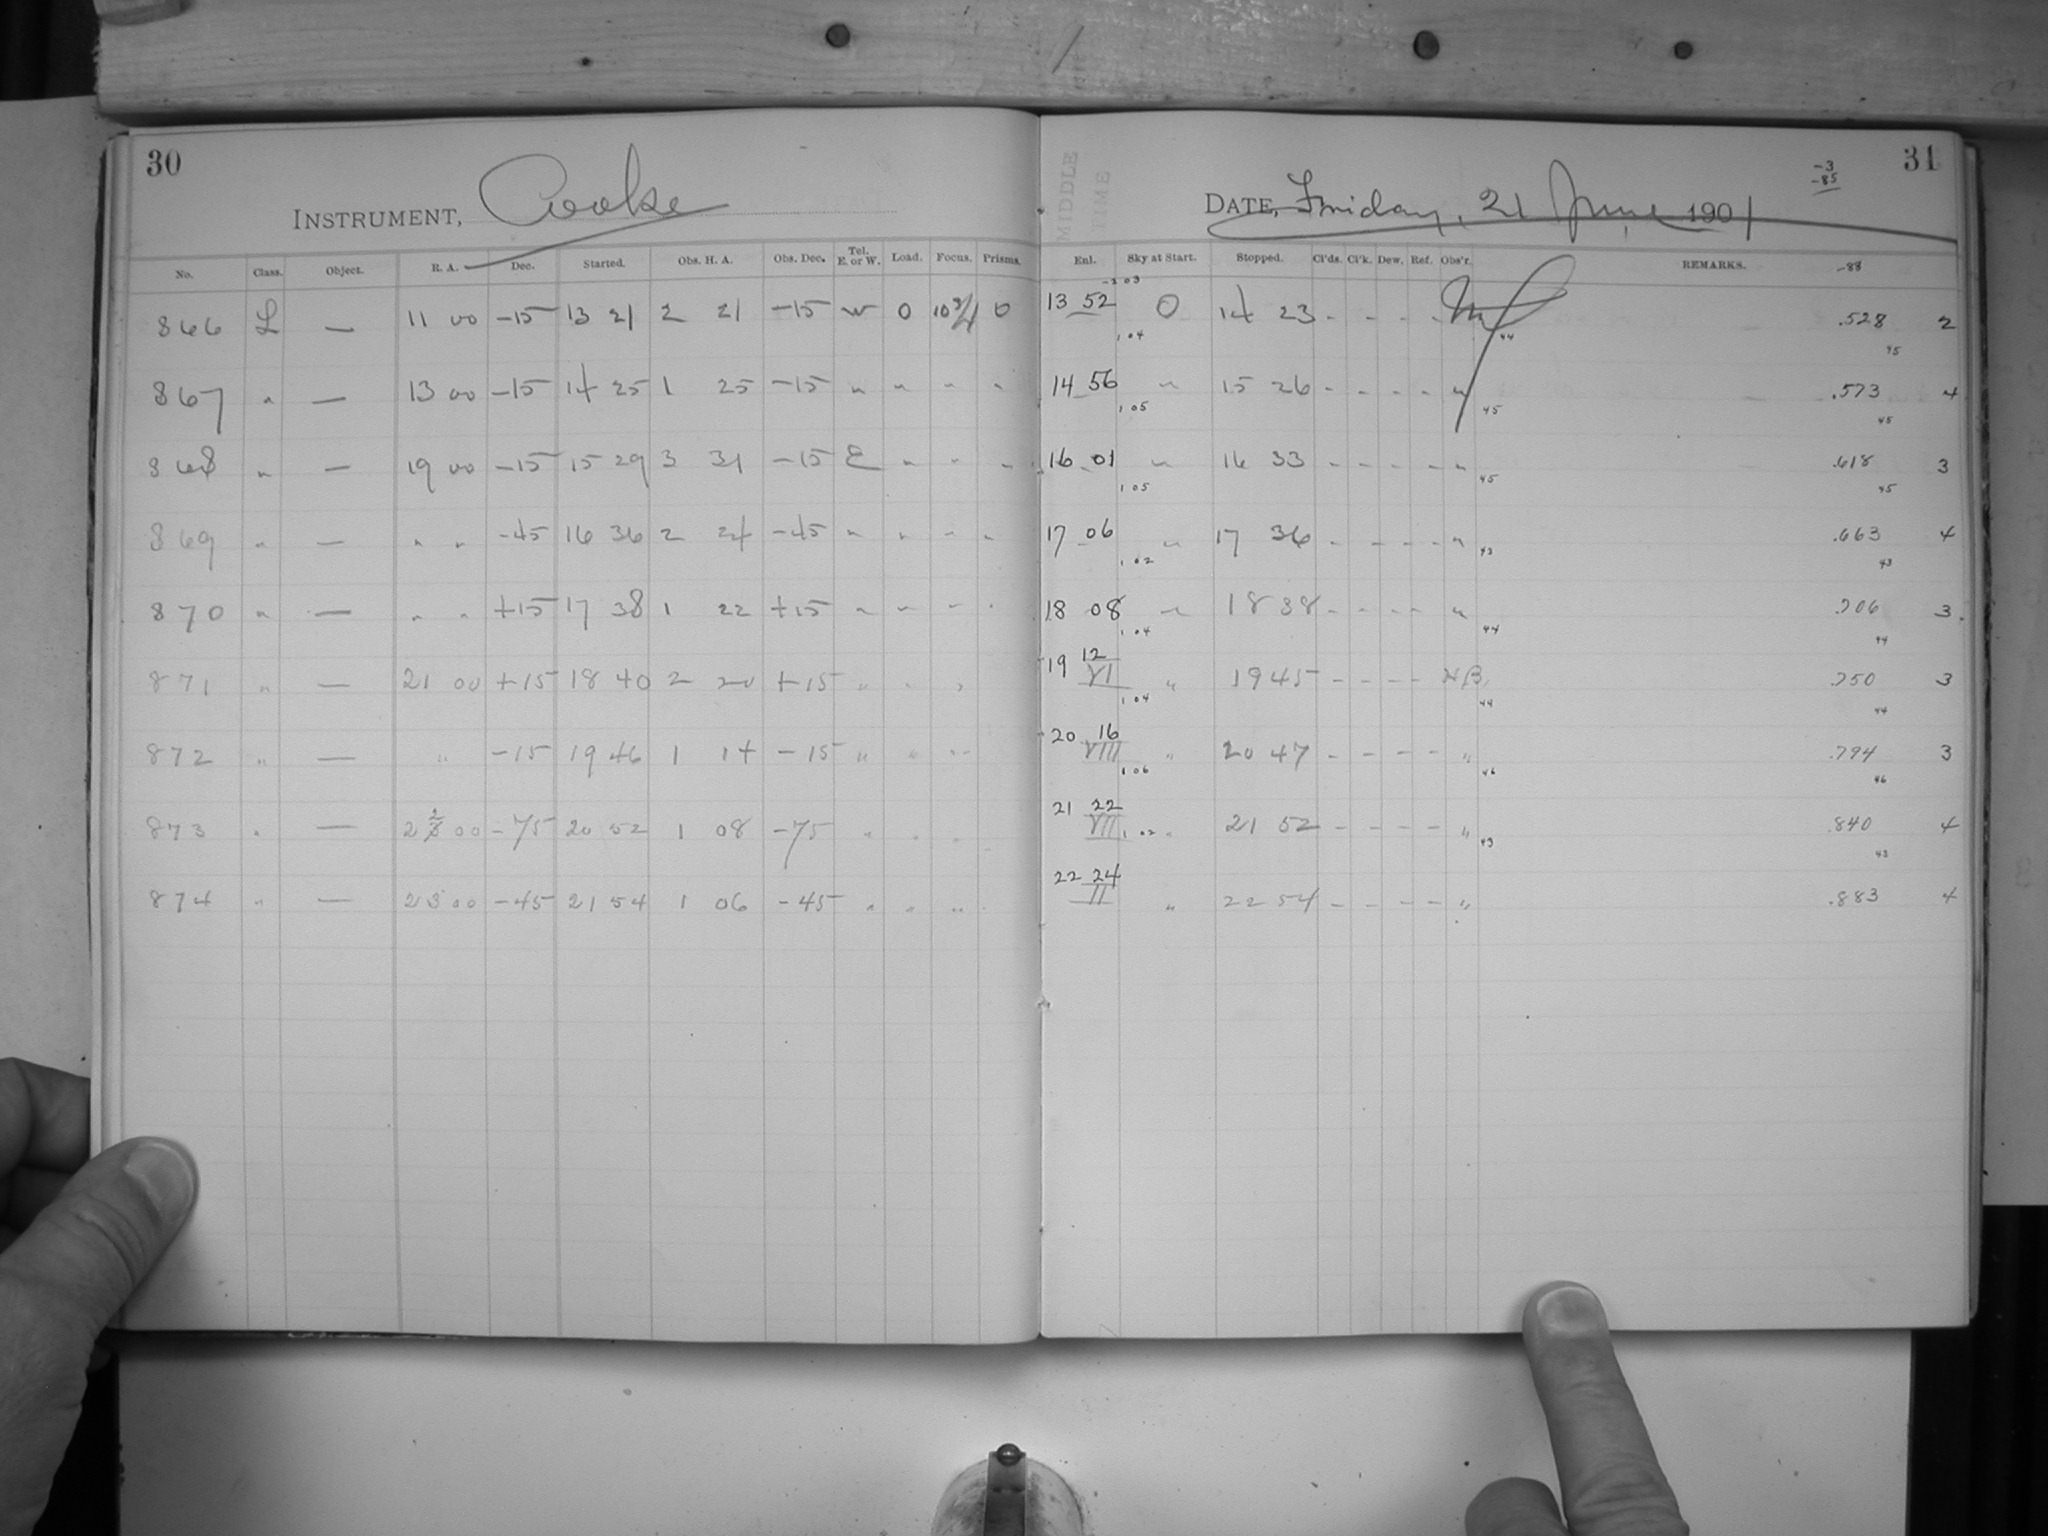 30
INSTRUMENT, Cooke
No. Class. Object. R. A. Dec. Started. Obs. H. A. Obs. Dec. Tel. E. or W. Load. Focus. Prisms.
866 L — 11 00 -15 13 21 2 21 -15 W 0 10 3/4 0
867 " — 13 00 -15 14 25 1 25 -15 " " " "
868 " — 19 00 -15 15 29 3 31 -15 E " " "
869 " — " " -45 16 36 2 24 -45 " " " "
870 " — " " +15 17 38 1 22 +15 " " " "
871 " — 21 00 +15 18 40 2 20 +15 " " "
872 " — " -15 19 46 1 14 -15 " " "
873 " — 2 00 -75 20 52 1 08 -75 " " "
874 " — 23 00 -45 21 54 1 06 -45 " " "
31
-3
-85
MIDDLE TIME
DATE, Friday, 21 June 1901
Enl. Sky at Start. Stopped. Cl'ds. Cl'k. Dew. Ref. Obs'r. REMARKS. -88
1 03
13 52 0 14 23 - - - - .528 2
1 04 44 45
14 56 " 15 26 - - - - " .573 4
1 05 45 45
16 01 " 16 33 - - - - " .618 3
1 05 45 45
17 06 " 17 36 - - - - " .663 4
1 02 43 43
18 08 " 18 38 - - - - " .706 3
1 04 44 44
19 12 VI " 19 45 - - - - .750 3
1 04 44 44
20 16 VIII " 20 47 - - - - " .794 3
1 06 46 46
21 22 VII " 21 52 - - - - " .840 4
1 02 43 43
22 24 II " 22 54 - - - - " .883 4